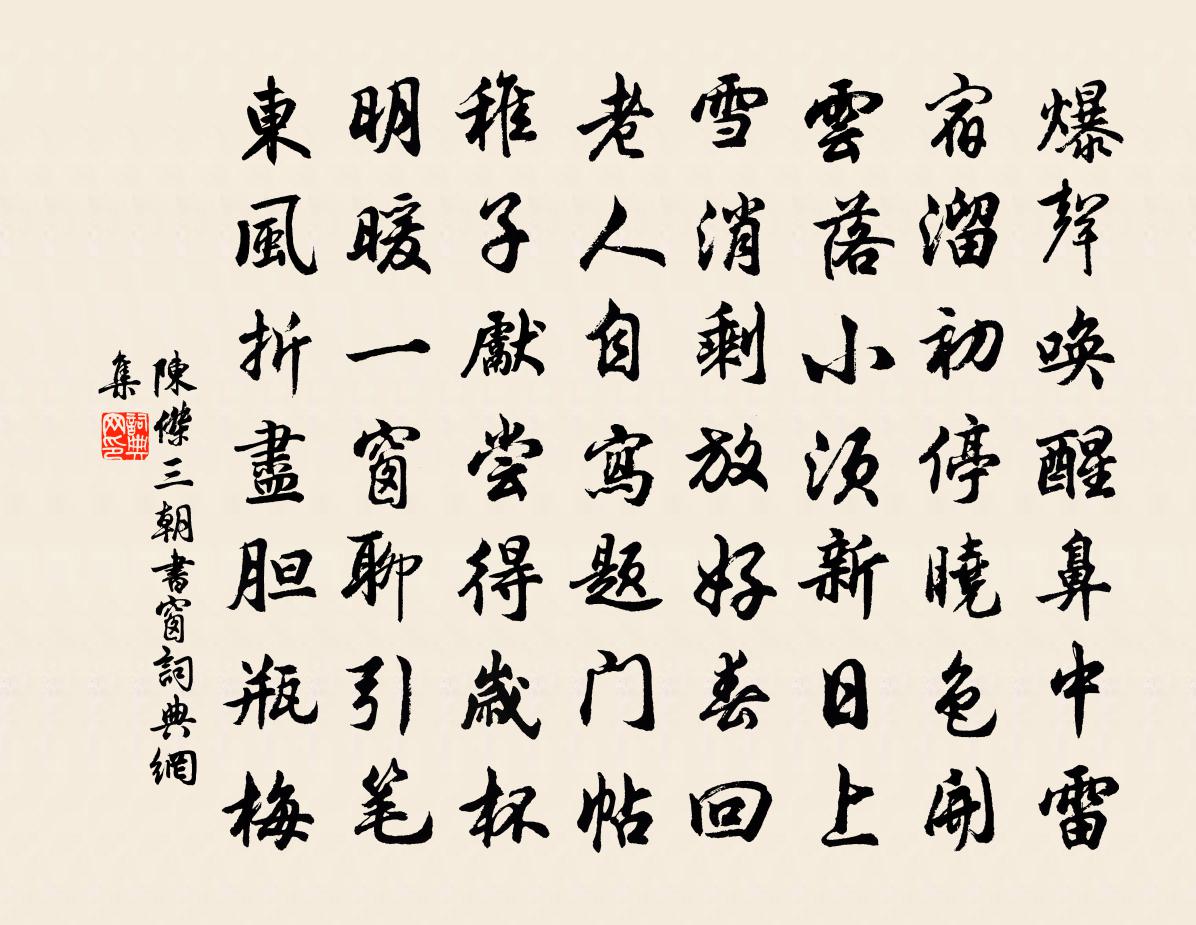 爆聲喚醒鼻中雷
宿溜初停曉色開
雲落小須新日上
雪消剩放好春回
老人自寫題门帖
稚子獻尝得歲杯
明暖一窗聊引笔
東風折盡胆瓶梅
陳傑三朝書窗詞典網
集
詞典网印